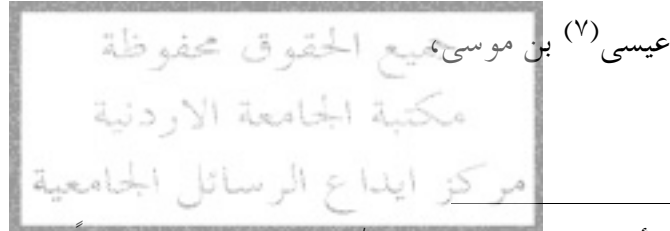 عيسى(٧) بن موسى،
جميع الحقوق محفوظة
مكتبة الجامعة الاردنية
مركز ايداع الرسائل الجامعية